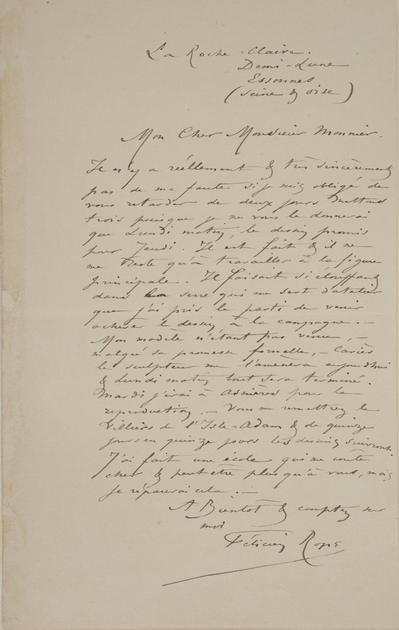 La Roche-Claire.
Demi-Lune
Essonnes
(Seine & Oise)
Mon Cher Monsieur Monnier.
Il n'y a réellement & très sincèrement
pas de ma faute si je suis obligé de
vous retarder de deux jours mettons
trois puisque je ne vous le donnerai
que Lundi matin, le dessin promis
pour Jeudi. Il est fait & il ne
me reste qu'à travailler à la figure
principale. Il faisait si étouffant
dans la serre qui me sert d'atelier
que j'ai pris le parti de venir
achever le dessin à la campagne. –
Mon modèle n'étant pas venue, –
malgré sa promesse formelle, –
le sculpteur me l'amènera aujourd'hui
& Lundi matin tout sera terminé.
Mardi j'irai à Asnières pour la
reproduction. – Vous remettrez le
Villiers de l'Isle-Adam & de quinze
jours en quinze jours les dessins suivront.
J'ai fait une école qui me coûte
cher & peut être plus qu'à vous, mais
je réparerai cela. –
A Bientôt & comptez sur
moi
Félicien Rops